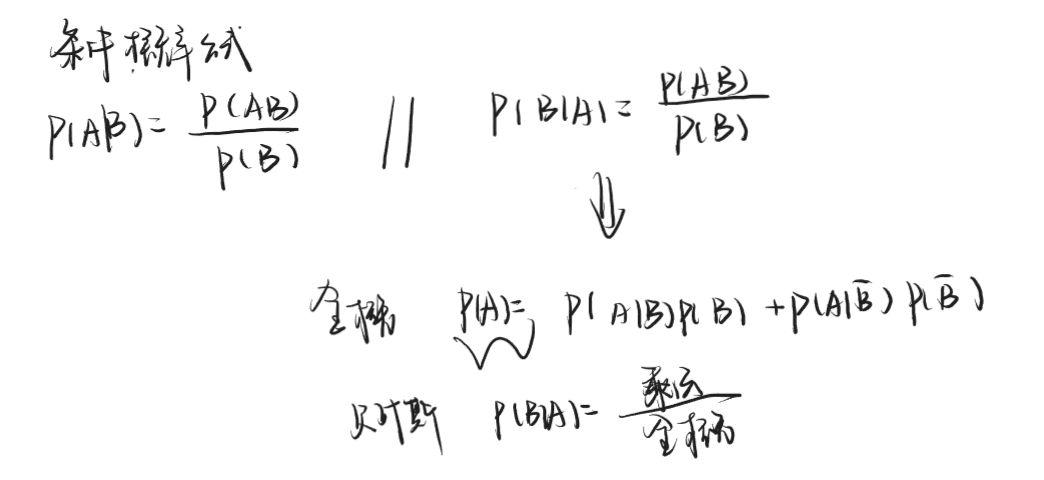 条件概率公式
P(A|B)= P(AB)/P(B) // P(B|A)= P(AB)/P(B)
⇓
全概 P(A)= P(A|B)P(B)+P(A|B̅)P(B̅)
贝叶斯 P(B|A)= 乘法/全概